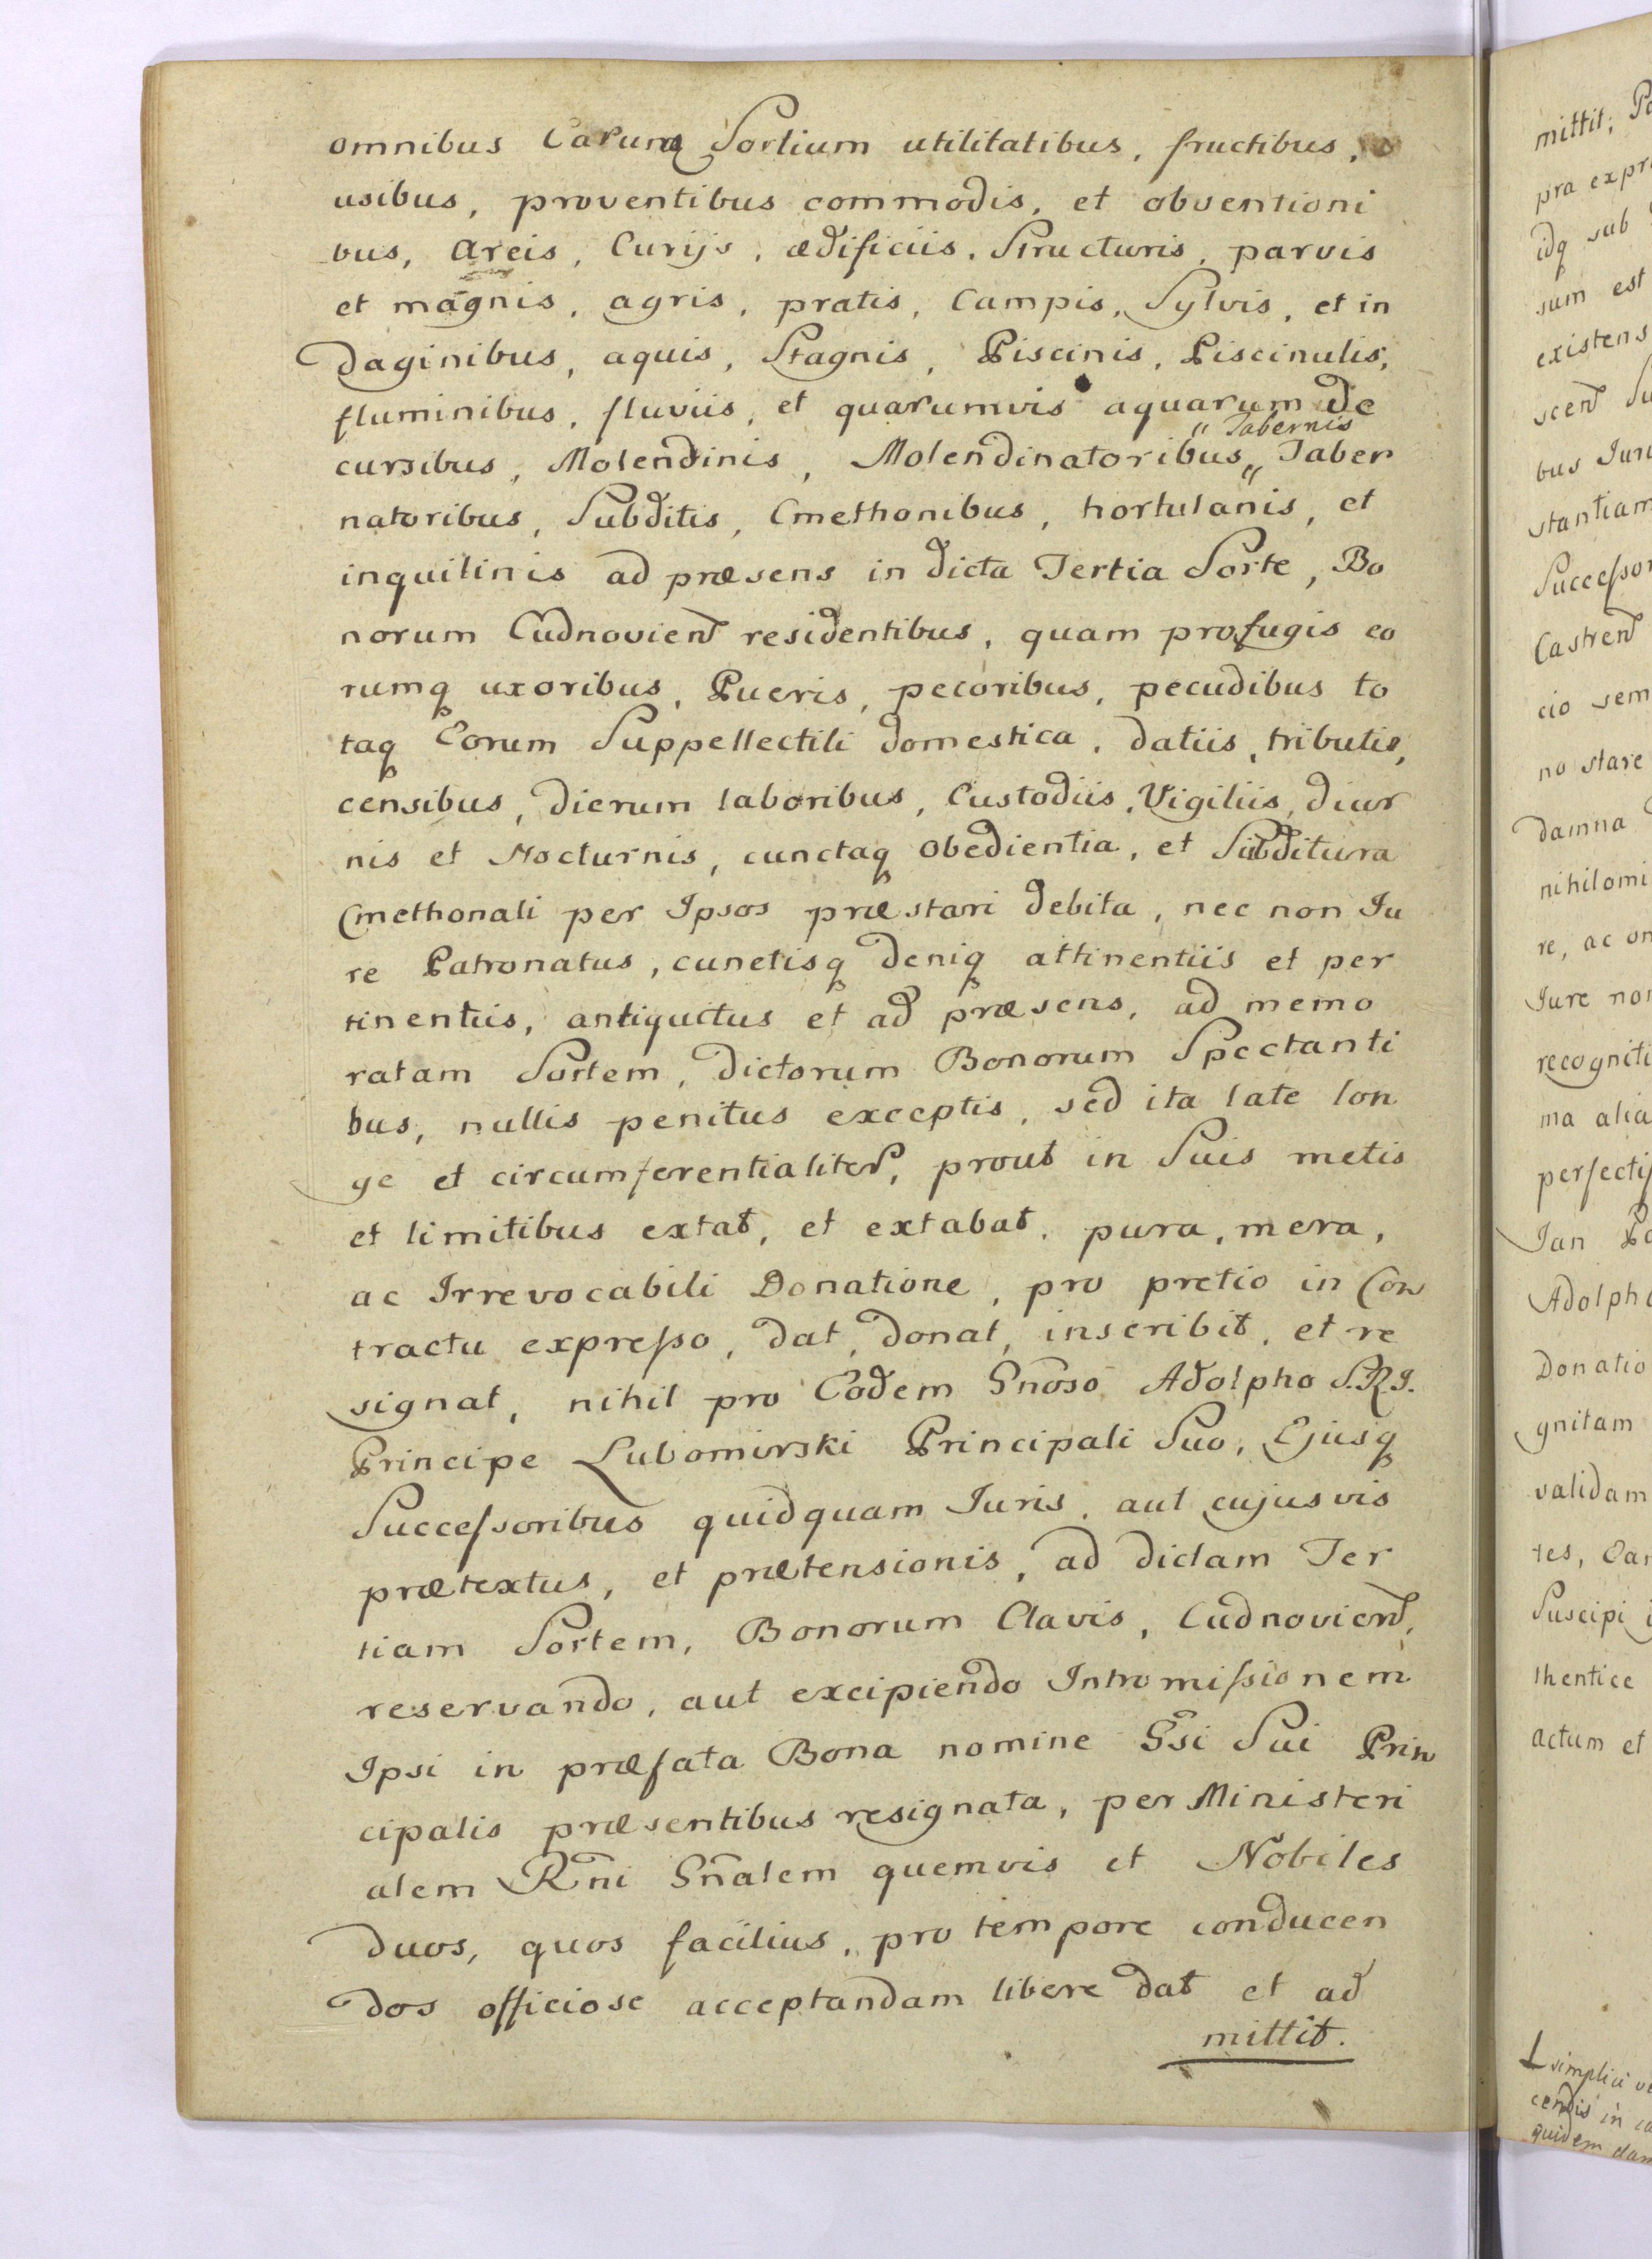 omnibus Earumq Sortium utilitatibus, fructibus,
usibus, proventibus commodis, et obventioni
bus, Areis, Curijs, ædificiis, Structuris, parvis
et magnis, agris, pratis, Campis, Sylvis, et in
daginibus, aquis, Stagnis, Piscinis, Piscinulis,
fluminibus, fluviis, et quarumvis aquarum de
cursibus, Molendinis, Molendinatoribus, " Tabernis " Taber
natoribus, Subditis, Cmethonibus, hortulanis, et
inquilinis ad præsens in dicta Tertia Sorte, Bo
norum Cudnovien residentibus, quam profugis eo
rumq uxoribus, Pueris, pecoribus, pecudibus to
taq Eorum Suppellectili domestica, datiis, tributis,
censibus, dierum laboribus, Custodiis, Vigiliis, diur
nis et Nocturnis, cunctaq obedientia, et Subditura
Cmethonali per Ipsos præstari debita, nec non Ju
re Patronatus, cunctisq deniq attinentiis et per
tinentiis, antiquitus et ad præsens, ad memo
ratam Sortem, dictorum Bonorum Spectanti
bus, nullis penitus exceptis, sed ita late lon
ge et circumferentialiter, prout in Suis metis
et limitibus extat, et extabat, pura, mera,
ac Irrevocabili Donatione, pro pretio in Con
tractu expresso, dat, donat, inscribit, et re
signat, nihil pro Eodem Gnoso Adolpho S.R.I.
Principe Lubomirski Principali Suo, Ejusq
Successoribus quidquam Juris, aut cujusvis
prætextus, et prætensionis, ad dictam Ter
tiam Sortem, Bonorum Clavis, Cudnovien,
reservando, aut excipiendo Intromissionem
Ipsi in præfata Bona nomine Gsi Sui Prin
cipalis præsentibus resignata, per Ministeri
alem Rni Gnalem quemvis et Nobiles
duos, quos facilius, pro tempore conducen
dos officiose acceptandam libere dat et ad
mittit.
mittit;
pra expr
idq sub
sum est
existens
scen
bus Juri
stantiam
Successor
Castren
cio sem
no stare
damna
nihilomi
re, ac om
Jure non
recogniti
ma alia
perfectis
Jan
Adolpho
Donatio
gnitam
validam
tes, Ear
Suscipi
thentice
actum et
simplici
cendis in
quidem dam